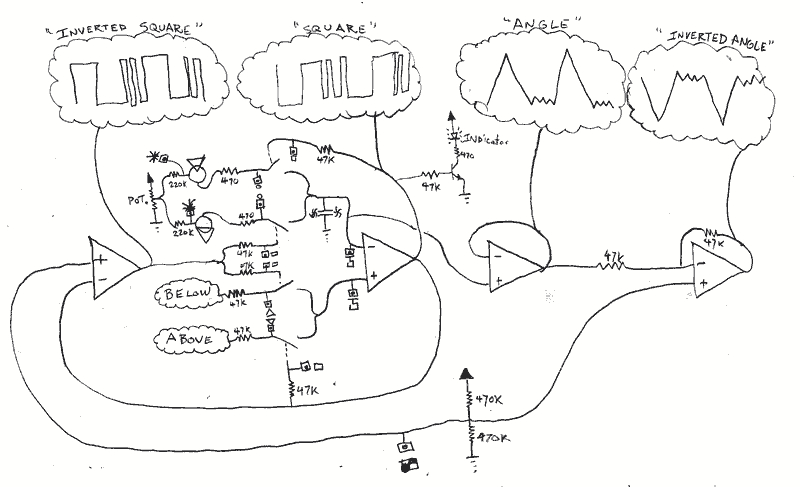 "INVERTED SQUARE"
"SQUARE"
"ANGLE"
"INVERTED ANGLE"
INDicator
470
47K
47K
220K
470
POT.
220K
470
47K
47K
BELOW
47K
ABOVE
47K
47K
47K
47K
470K
470K
+
-
-
+
-
+
-
+